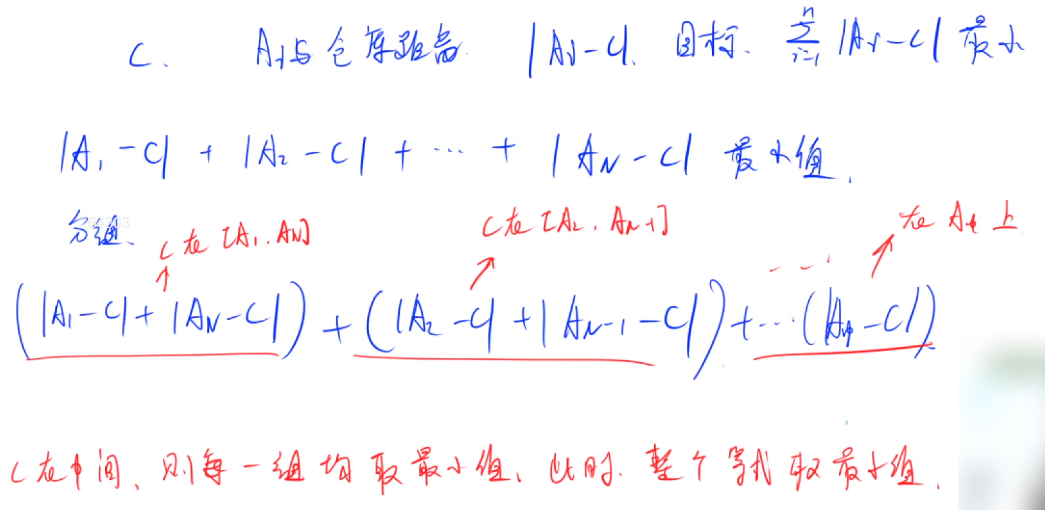 C. Ai与仓库距离 |Ai-C|. 目标. \sum_{i=1}^{n} |Ai-C| 最小
|A₁-C| + |A₂-C| + … + |A_N-C| 最小值.
分组、
C在[A₁.A_N]
C在[A₂.A_{N-1}]
在A中上
(|A₁-C|+|A_N-C|) + (|A₂-C|+|A_{N-1}-C|) +…(|A中-C|)
C在中间、则每一组均取最小值、此时.整个等式取最小值.